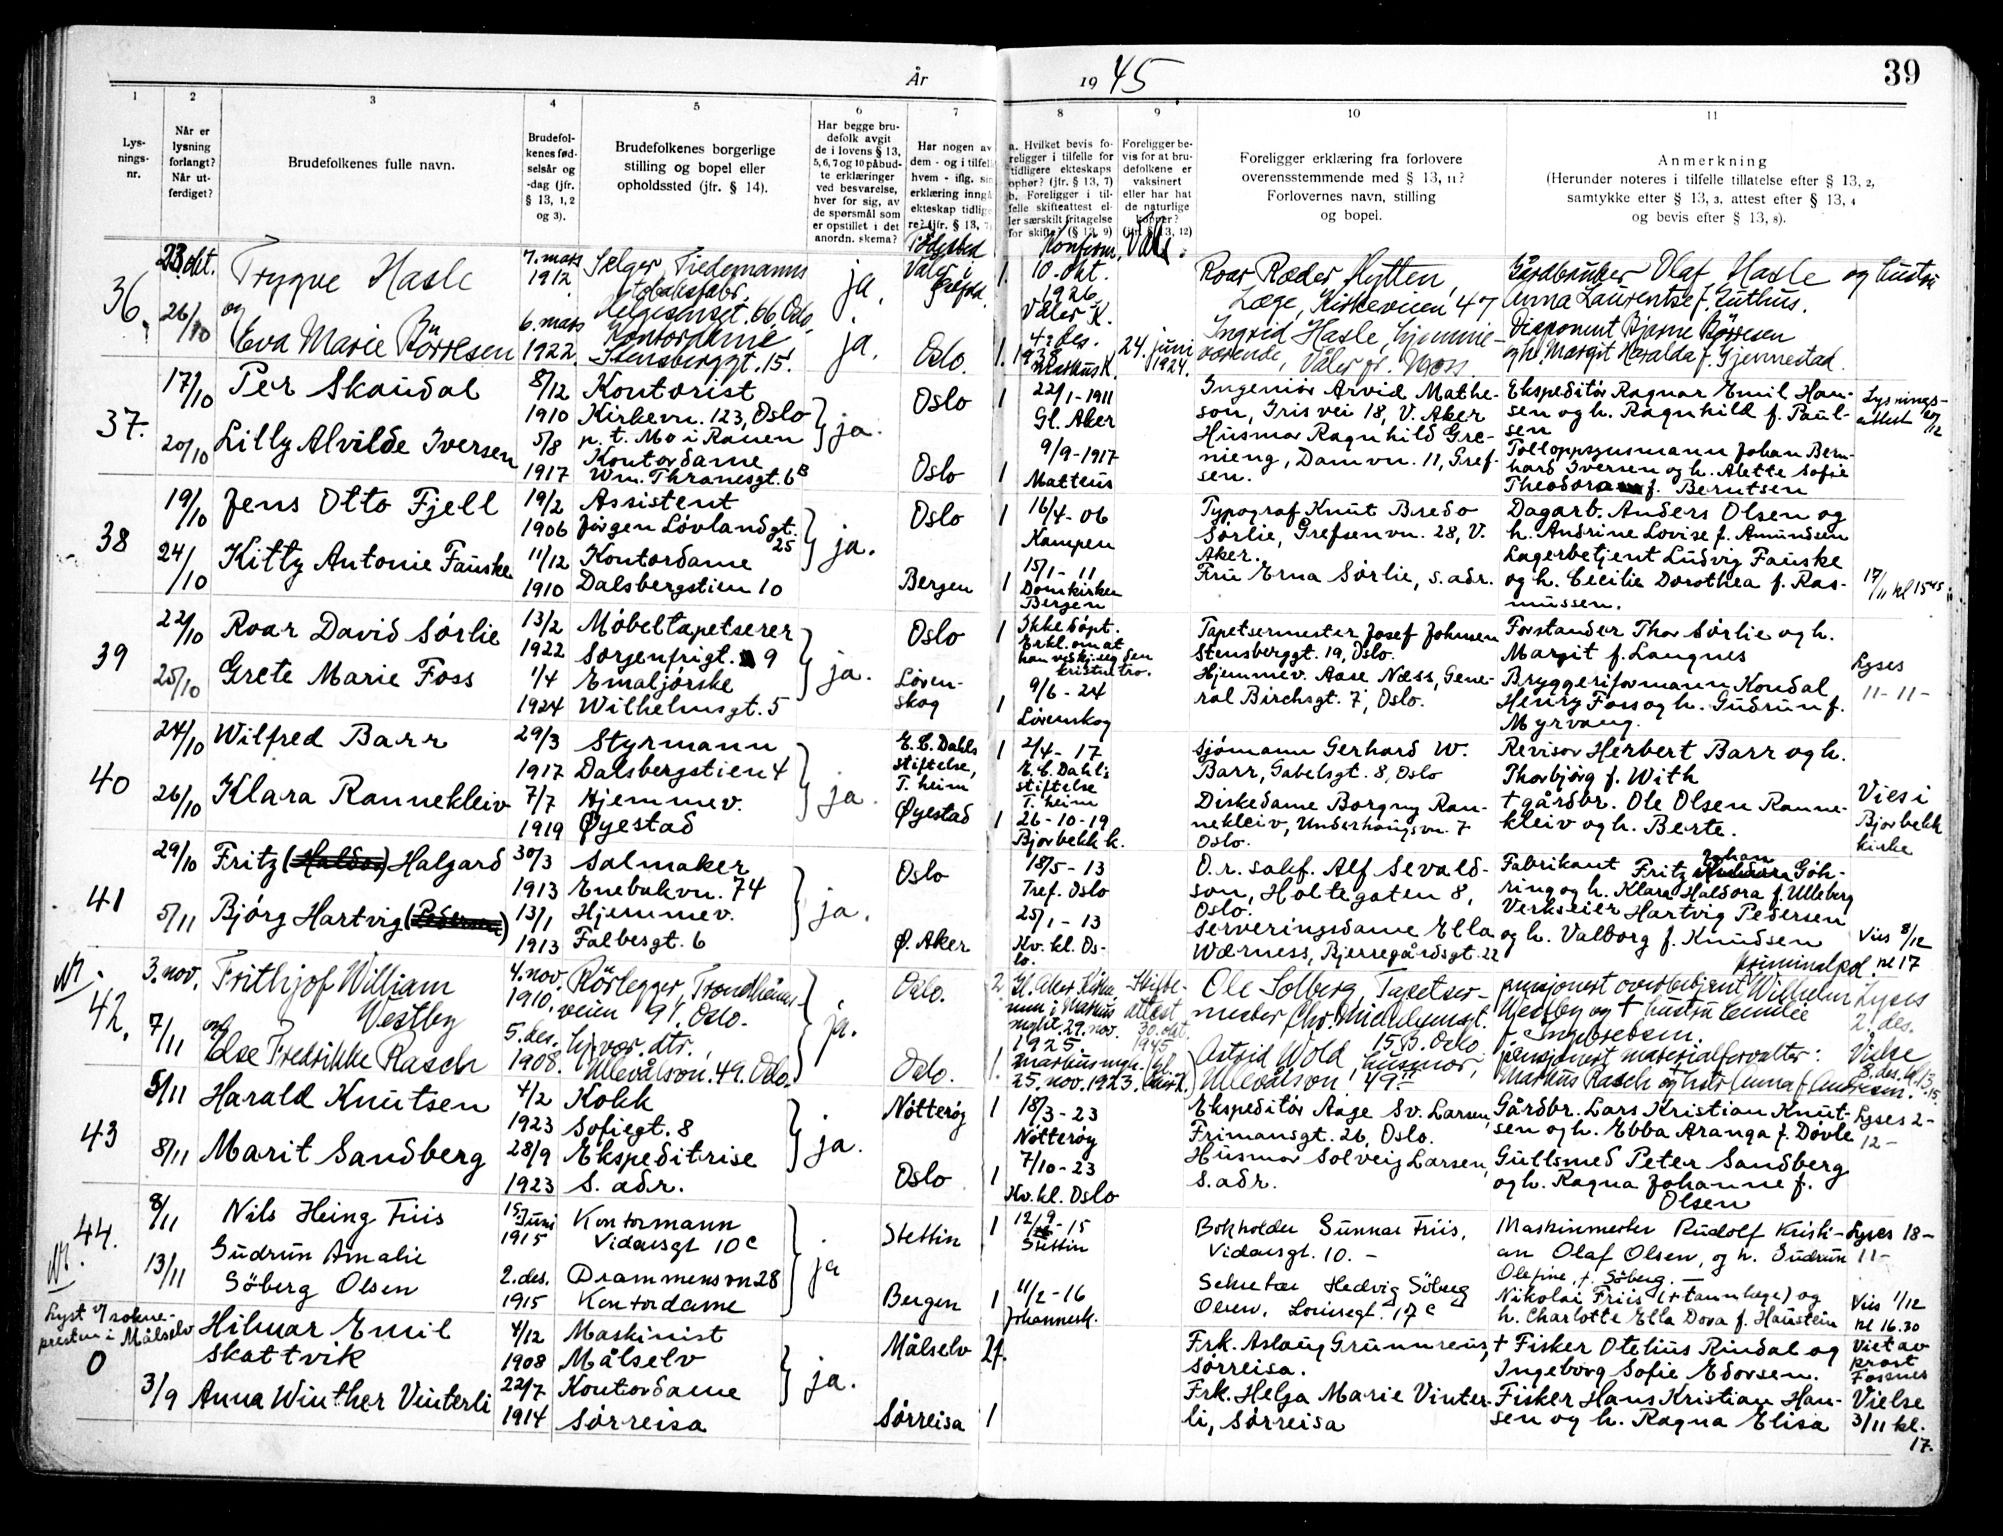 År 1945
39
1 2 3 4 5 6 7 8 9 10 11
Lys-
nings-
nr.
Når er
lysning
forlangt?
Når ut-
ferdiget?
Brudefolkenes fulle navn.
Brudefol-
kenes fød-
selsår og
-dag (jfr.
§ 13, 1, 2
og 3).
Brudefolkenes borgerlige
stilling og bopel eller
opholdssted (jfr. § 14).
Har begge bru-
defolk avgit
de i lovens § 13,
5, 6, 7 og 10 påbud-
te erklæringer
ved besvarelse,
hver for sig, av
de spørsmål som
er opstillet i det
anordn. skema?
Har nogen av
dem - og i tilfelle
hvem - iflg. sin
erklæring inngå
ekteskap tidlige
re? (jfr. § 13, 7)
a. Hvilket bevis fo-
religger i tilfelle for
tidligere ekteskaps
ophør? (jfr. § 13, 7)
b. Foreligger i til-
felle skifteattest el-
ler særskilt fritagelse
for skifte? (§ 13, 9)
Foreligger be-
vis for at bru-
defolkene er
vaksinert
eller har hat
de naturlige
kopper?
(jfr. § 13, 12)
Foreligger erklæring fra forlovere
overensstemmende med § 13, 11?
Forlovernes navn, stilling
og bopel.
Anmerkning
(Herunder noteres i tilfelle tillatelse efter § 13, 2,
samtykke efter § 13, 3, attest efter § 13, 4
og bevis efter § 13, 8).
Fødested
Konfirm.
Vaks.
36.
23. okt.
26/10
Trygve Hasle
og
Eva Marie Börresen
7. mars
1912
6. mars
1922
Selger, Tiedemanns
tobaksfabr.
Helgesensgt. 66 Oslo.
Kontordame
Stensberggt. 15.
ja.
ja.
Våler i
Østfold.
Oslo.
1
1.
10. okt.
1926
Våler K.
4. des.
1938
Markus K.
24. juni
1924.
Roar Ræder Hytten,
Læge, Kirkeveien 47
Ingrid Hasle, hjemme-
værende, Våler pr. Moss.
Gårdbruker Olaf Hasle og hustru
Anna Laurentse f. Guthus.
Disponent Bjarne Börresen
og h. Margit Haralda f. Gjennestad.
37.
17/10
20/10
Per Skaudal
Lilly Alvilde Iversen
8/12
1910
5/8
1917
Kontorist
Kirkevn. 123, Oslo
p.t. Mo i Ranen
Kontordame
Wm. Thranesgt. 6B
ja.
Oslo
Oslo
1
1
22/1-1911
Gl. Aker
9/9-1917
Matteus
Ingeniør Arvid Mathe-
son, Iris vei 18, V. Aker
Husmor Ragnhild Gre-
nieng, Damvn. 11, Gref-
sen.
Ekspeditør Ragnar Emil Han-
sen og h. Ragnhild f. Paul-
sen
Tolloppsynsmann Johan Bern-
hard Iversen og h. Alette Sofie
Theodora f. Berntsen
Lysnings-
attest 27/12
38
19/10
24/10
Jens Otto Fjell
Kitty Antonie Fauske
19/2
1906
11/12
1910
Assistent
Jørgen Løvlandsgt.
25
Kontordame
Dalsbergstien 10
ja.
Oslo
Bergen
1
1
16/4-06
Kampen
15/1-11
Domkirken
Bergen
Typograf Knut Bredo
Sørlie, Grefsenvn. 28, V.
Aker.
Fru Erna Sørlie, s. adr.
Dagarb. Anders Olsen og
h. Andrine Lovise f. Amundsen
Lagerbetjent Ludvig Fauske
og h. Cecilie Dorothea f. Ras-
mussen.
17/11 kl 15 45
39
22/10
25/10
Roar David Sørlie
Grete Marie Foss
13/2
1922
1/4
1924
Møbeltapetserer
Sorgenfrigt. 9
Emaljørske
Wilhelmsgt. 5
ja.
Oslo
Løren-
skog
1
1
Ikke døpt.
Erkl. om at
han veskj. seg den
kristne tro.
9/6-24
Lørenskog
Tapetsermester Josef Johnsen
Stensberggt. 19, Oslo.
Hjemmev. Aase Næss, Gene-
ral Birchsgt. 7, Oslo.
Forstander Thor Sørlie og h.
Margit f. Langnes
Bryggeriformann Kondal
Henry Foss og h. Gudrun f.
Myrvang.
Lyses
11-11-
40
24/10
26/10
Wilfred Barr
Klara Rannekleiv
29/3
1917
7/7
1919
Styrmann
Dalsbergstien 4
Hjemmev.
Øyestad
ja.
E.C. Dahls
stiftelse,
T. heim
Øyestad
1
1
2/4-17
E.C. Dahls
stiftelse
T. heim
26-10-19
Bjorbekk k.
Sjømann Gerhard W.
Barr, Gabelsgt. 8, Oslo
Diskedame Borgny Ran-
nekleiv, Underhaugsvn. 7
Oslo.
Revisor Herbert Barr og h.
Thorbjørg f. With
+ gårdbr. Ole Olsen Ranne-
kleiv og h. Berte.
Vies i
Bjorbekk
kirke
41
29/10
5/11
Fritz (Haldor) Halgard
Bjørg Hartvig (Pedersen)
30/3
1913
13/1
1913
Salmaker
Enebakvn. 74
Hjemmev.
Falbesgt. 6
ja.
Oslo
Ø. Aker
18/5-13
Tref. Oslo
25/1-13
Kv. kl. Os-
lo.
O.r. sakf. Alf Sevald-
son, Holtegaten 8,
Oslo.
Serveringsdame Ella
Wærness, Bjerregårdsgt. 22
Fabrikant Fritz Johan Göh-
ring og h. Klara Haldora f. Ulleberg
Verkseier Hartvig Pedersen
og h. Valborg f. Knudsen
Vies 8/12
kl 17
42.
3. nov.
7/11
Frithjof William
Vestby
og
Else Fredrikke Rasch
4. nov.
1910.
5. des.
1908.
Rörlegger, Trondheims-
veien 91. Oslo.
hj. vær. dtr.,
Ullevålsvn. 49. Oslo.
ja.
Oslo.
Oslo.
2
1.
Gl. Aker Kirke
men i Markus
mght. 29. nov.
1925
Markus mgh.
25. nov. 1923.
Skifte-
attest
30. okt.
1945
Ole Solberg, Tapetser-
mester Chr. Middelfartsgt.
15 B. Oslo
Astrid Wold, husmor,
Ullevålsvn. 49
Kriminalpol.
pensjonert overbetjent Wilhelm
Westby og + hustru Emilie
f. Ingebretsen.
pensjonert materialforvalter:
Markus Rasch og hstr Anna f. Andresen.
Lyses
2. des.
Vielse
8. des. kl. 13.15.
43
5/11
8/11
Harald Knutsen
Marit Sandberg
4/2
1923
28/9
1923
Kokk
Sofiegt. 8
Ekspeditrise
S. adr.
ja.
Nötterøy
Oslo
1
1
18/3-23
Nötterøy
7/10-23
Kv. kl. Oslo
Ekspeditör Aage Sv. Larsen,
Frimansgt. 26, Oslo.
Husmor Solveig Larsen,
s. adr.
Gårdbr. Lars Kristian Knut-
sen og h. Ebba Aranga f. Døvle
Gullsmed Peter Sandberg
og h. Ragna Johanne f.
Olsen
Lyses 2-
12-
44.
8/11
13/11
Nils Heing Friis
Gudrun Amalie
Söberg Olsen
15. Juni
1915
2. des.
1915
Kontormann
Vidarsgt 10c
Drammensvn 28
Kontordame
ja
Stettin
Bergen
1
1
12/9-15
Stettin
11/2-16
Johannesk.
Bokholder Gunnar Friis,
Vidarsgt. 10. -
Sekretær Hedvig Söberg
Olsen, Louisegt. 17 c
Maskinmester Rudolf Kristi-
an Olaf Olsen, og h. Gudrun
Olefine, f. Söberg. -
Nikolai Friis (+ tannlege) og
h. Charlotte Ella Dora f. Haustein
Lyses 18-
11-
Vies 1/12
kl 16.30
Lyst v/ sokne-
presten i Målselv
0
3/9
Hilmar Emil
Skattvik
Anna Winther Vinterli
4/12
1908
22/7
1914
Maskinist
Målselv
Kontordame
Sørreisa
ja.
Målselv
Sørreisa
2f.
1
Frk. Aslaug Grunnreis,
Sørreisa.
Frk. Helga Marie Vinter-
li, Sørreisa
+ Fisker Otelius Rindal og
Ingeborg Sofie Edorsen.
Fisker Hans Kristian Han-
sen og h. Ragna Elisa
Viet av
prost
Fossnes
Vielse
3/11 kl.
17.